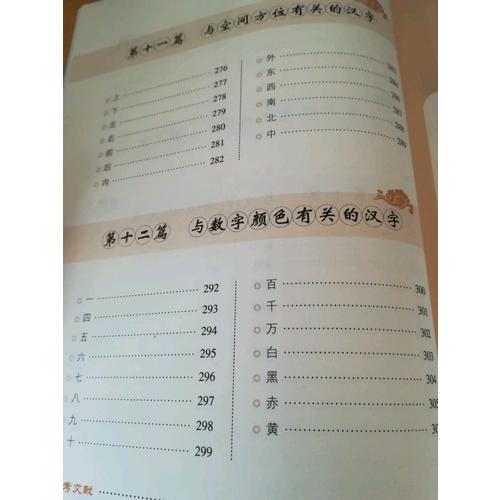 第十一篇 与空间方位有关的汉字
上 276
下 277
左 278
右 279
前 280
后 281
内 282
外
东
西 286
南 287
北 288
中 289
第十二篇 与数字颜色有关的汉字
一 292
四 293
五 294
六 295
七 296
八 297
九 298
十 299
百 300
千 301
万 302
白 303
黑 304
赤 305
黄 30
考文献